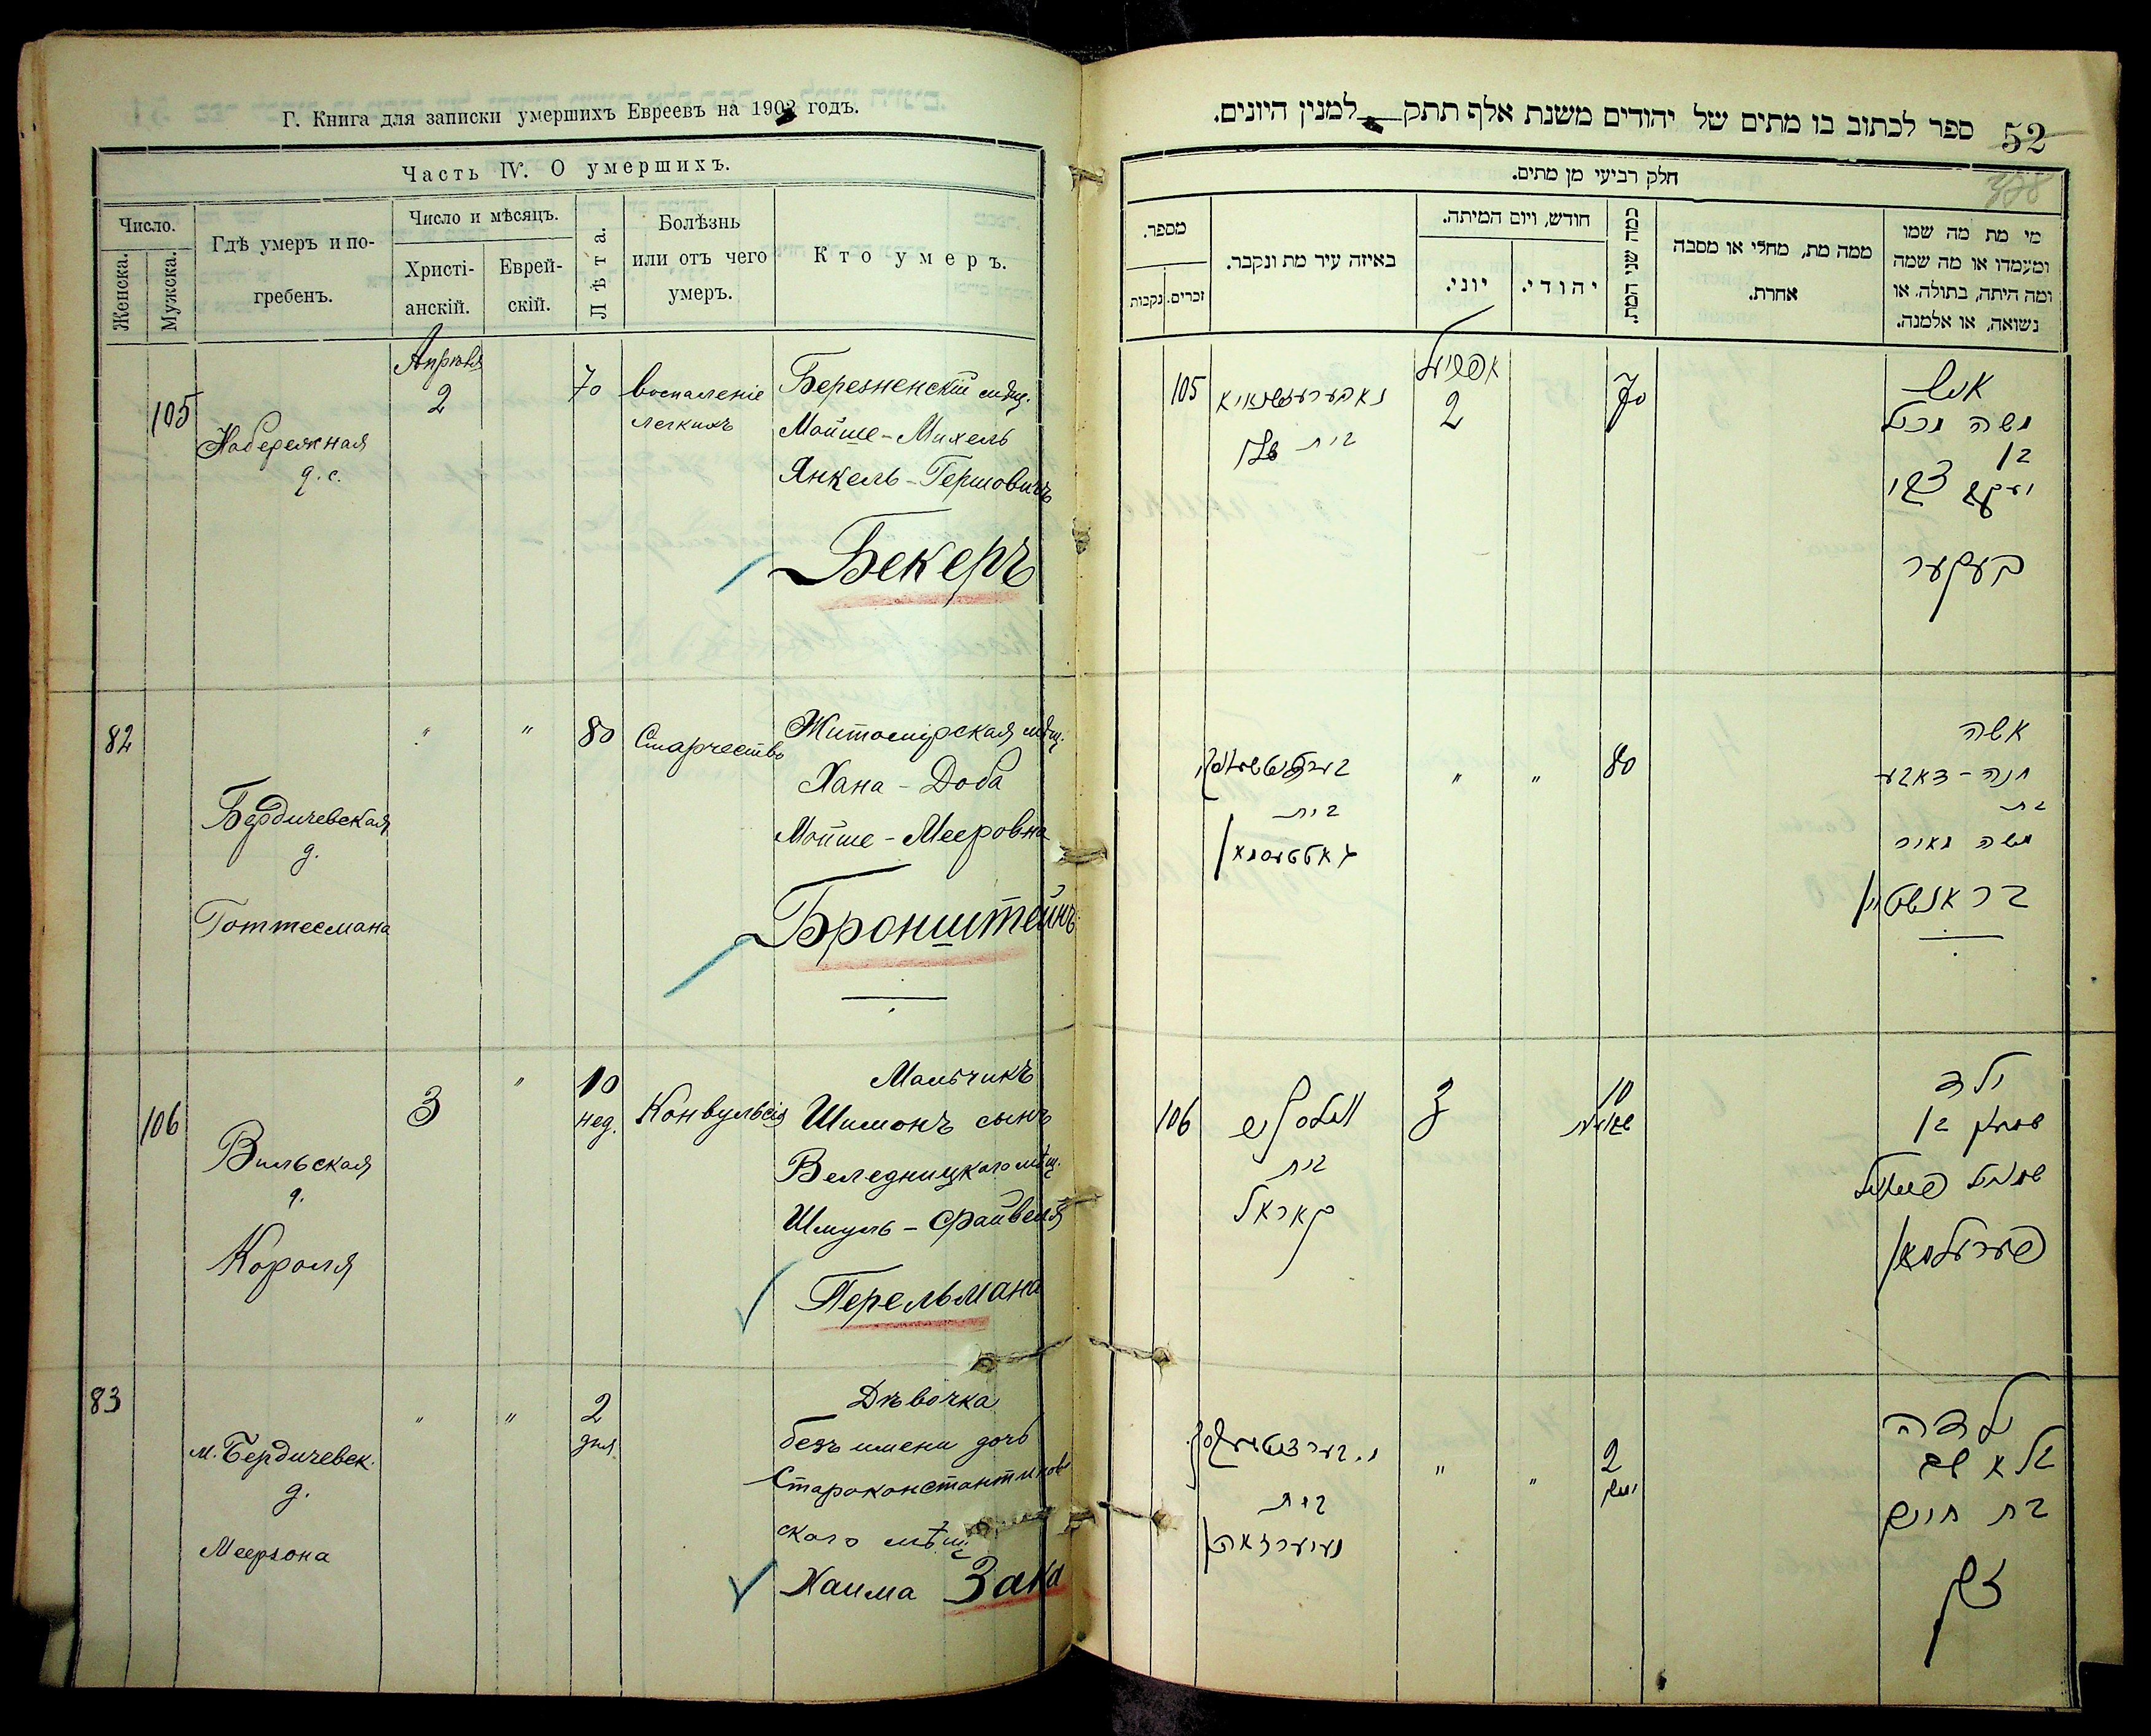 Г. Книга для записки умершихъ Евреевъ на 1902 годъ.
Часть IV. О умершихъ.
Число.
Женска.
Мужска.
Гдѣ умеръ и по-
гребенъ.
Число и мѣсяцъ.
Христі-
анскій.
Еврей-
скій.
Лѣта.
Болѣзнь
или отъ чего
умеръ.
Кто умеръ.
105
Набережная
Апрѣля
2
70
воспаленіе
легкихъ
Березненскій мѣщ.
Мойше-Михель
Янкель-Гершовичъ
Бекеръ
82
Бердичевская
д.
Готтесмана
"
"
80
Старчество
Житомірская мѣщ.
Хана-Доба
Мойше-Мееровна
Бронштейнъ
106
Вильская
д.
Короля
3
"
10
нед.
Конвульсія
Мальчикъ
Шимонъ сынъ
Веледницкаго мѣщ.
Шмуль-Файвеля
Перельмана
83
м. Бердичевск.
д.
Меерзона
"
"
2
дня
Дѣвочка
безъ имени дочь
Староконстантинов
скаго мѣщ.
Хаима Зака
52
ספר לכתוב בו מתים של יהודים משנת אלף תתק למנין היונים.
חלק רביעי מן מתים.
מי מת מה שמו
ומעמדו או מה שמה
ומה היתה, בתולה, או
נשואה, או אלמנה.
ממה מת, מחלי או מסבה
אחרת.
כמה שני המת.
חודש, ויום המיתה.
יהודי.
יוני.
באיזה עיר מת ונקבר.
מספר.
זכרים.
נקבות
איש
משה מכיל
בן
יעקב צבי
בעקער
70
אפריל
2
105
אשה
חנה-דאבע
בת
משה מאיר
בראנשטיין
80
"
"
בית
גאטטעסמאן
ילד
שמעון בן
שמואל פייוויל
פערעלמאן
10
3
בית
קאראל
106
ילדה
בלא שם
בת חיים
זאק
2
ימים
"
"
בית
מייערזאהן